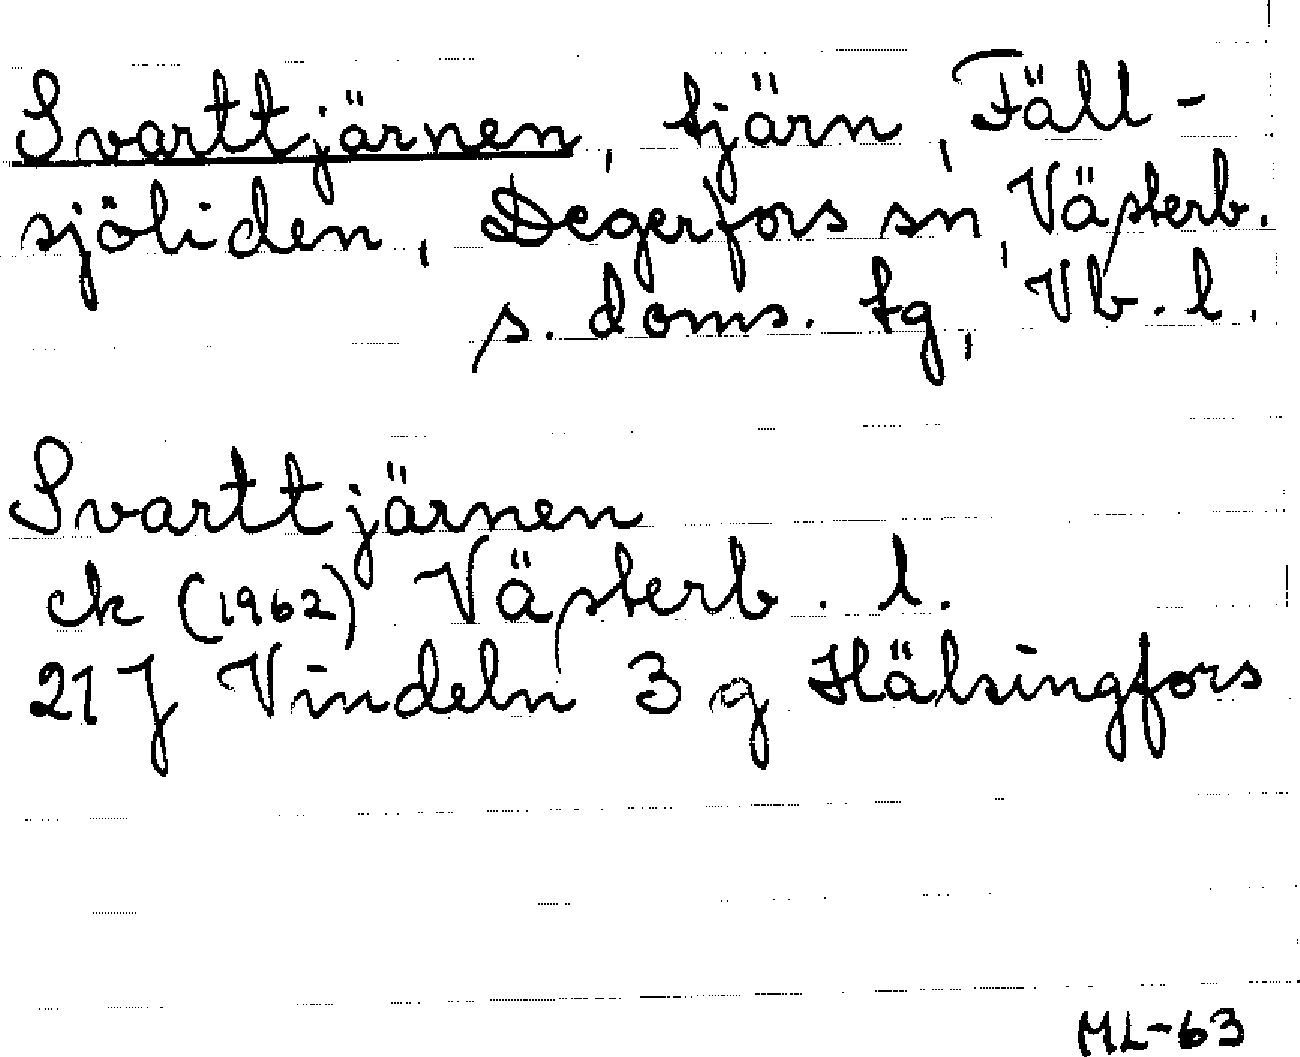 Svarttjärnen, tjärn, Fäll-
sjöliden, Degerfors sn, Västerb.
s. doms. tg, Vb. l.
Svarttjärnen
ek (1962) Västerb. l.
21 J Vindeln 3 g Hälsingfors
ML-63